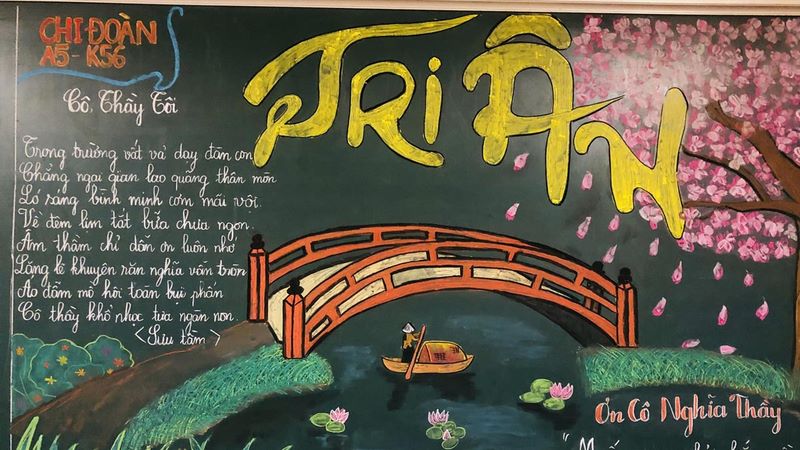 CHI ĐOÀN
A5 - K56
TRI ÂN
Cô Thầy Tôi
Trong trường vất vả dạy đàn con
Chẳng ngại gian lao quãng thân mòn
Ló sang bình minh cơm mấu vội
Về đêm lim tắt bữa chưa ngon
Âm thầm chỉ dẫn ơn luôn nhớ
Lặng lẽ khuyên răn nghĩa vẫn tròn
Áo đẫm mồ hôi toàn bụi phấn
Cô thầy khổ nhọc tựa ngàn non.
<Sưu tầm>
Ơn Cô Nghĩa Thầy